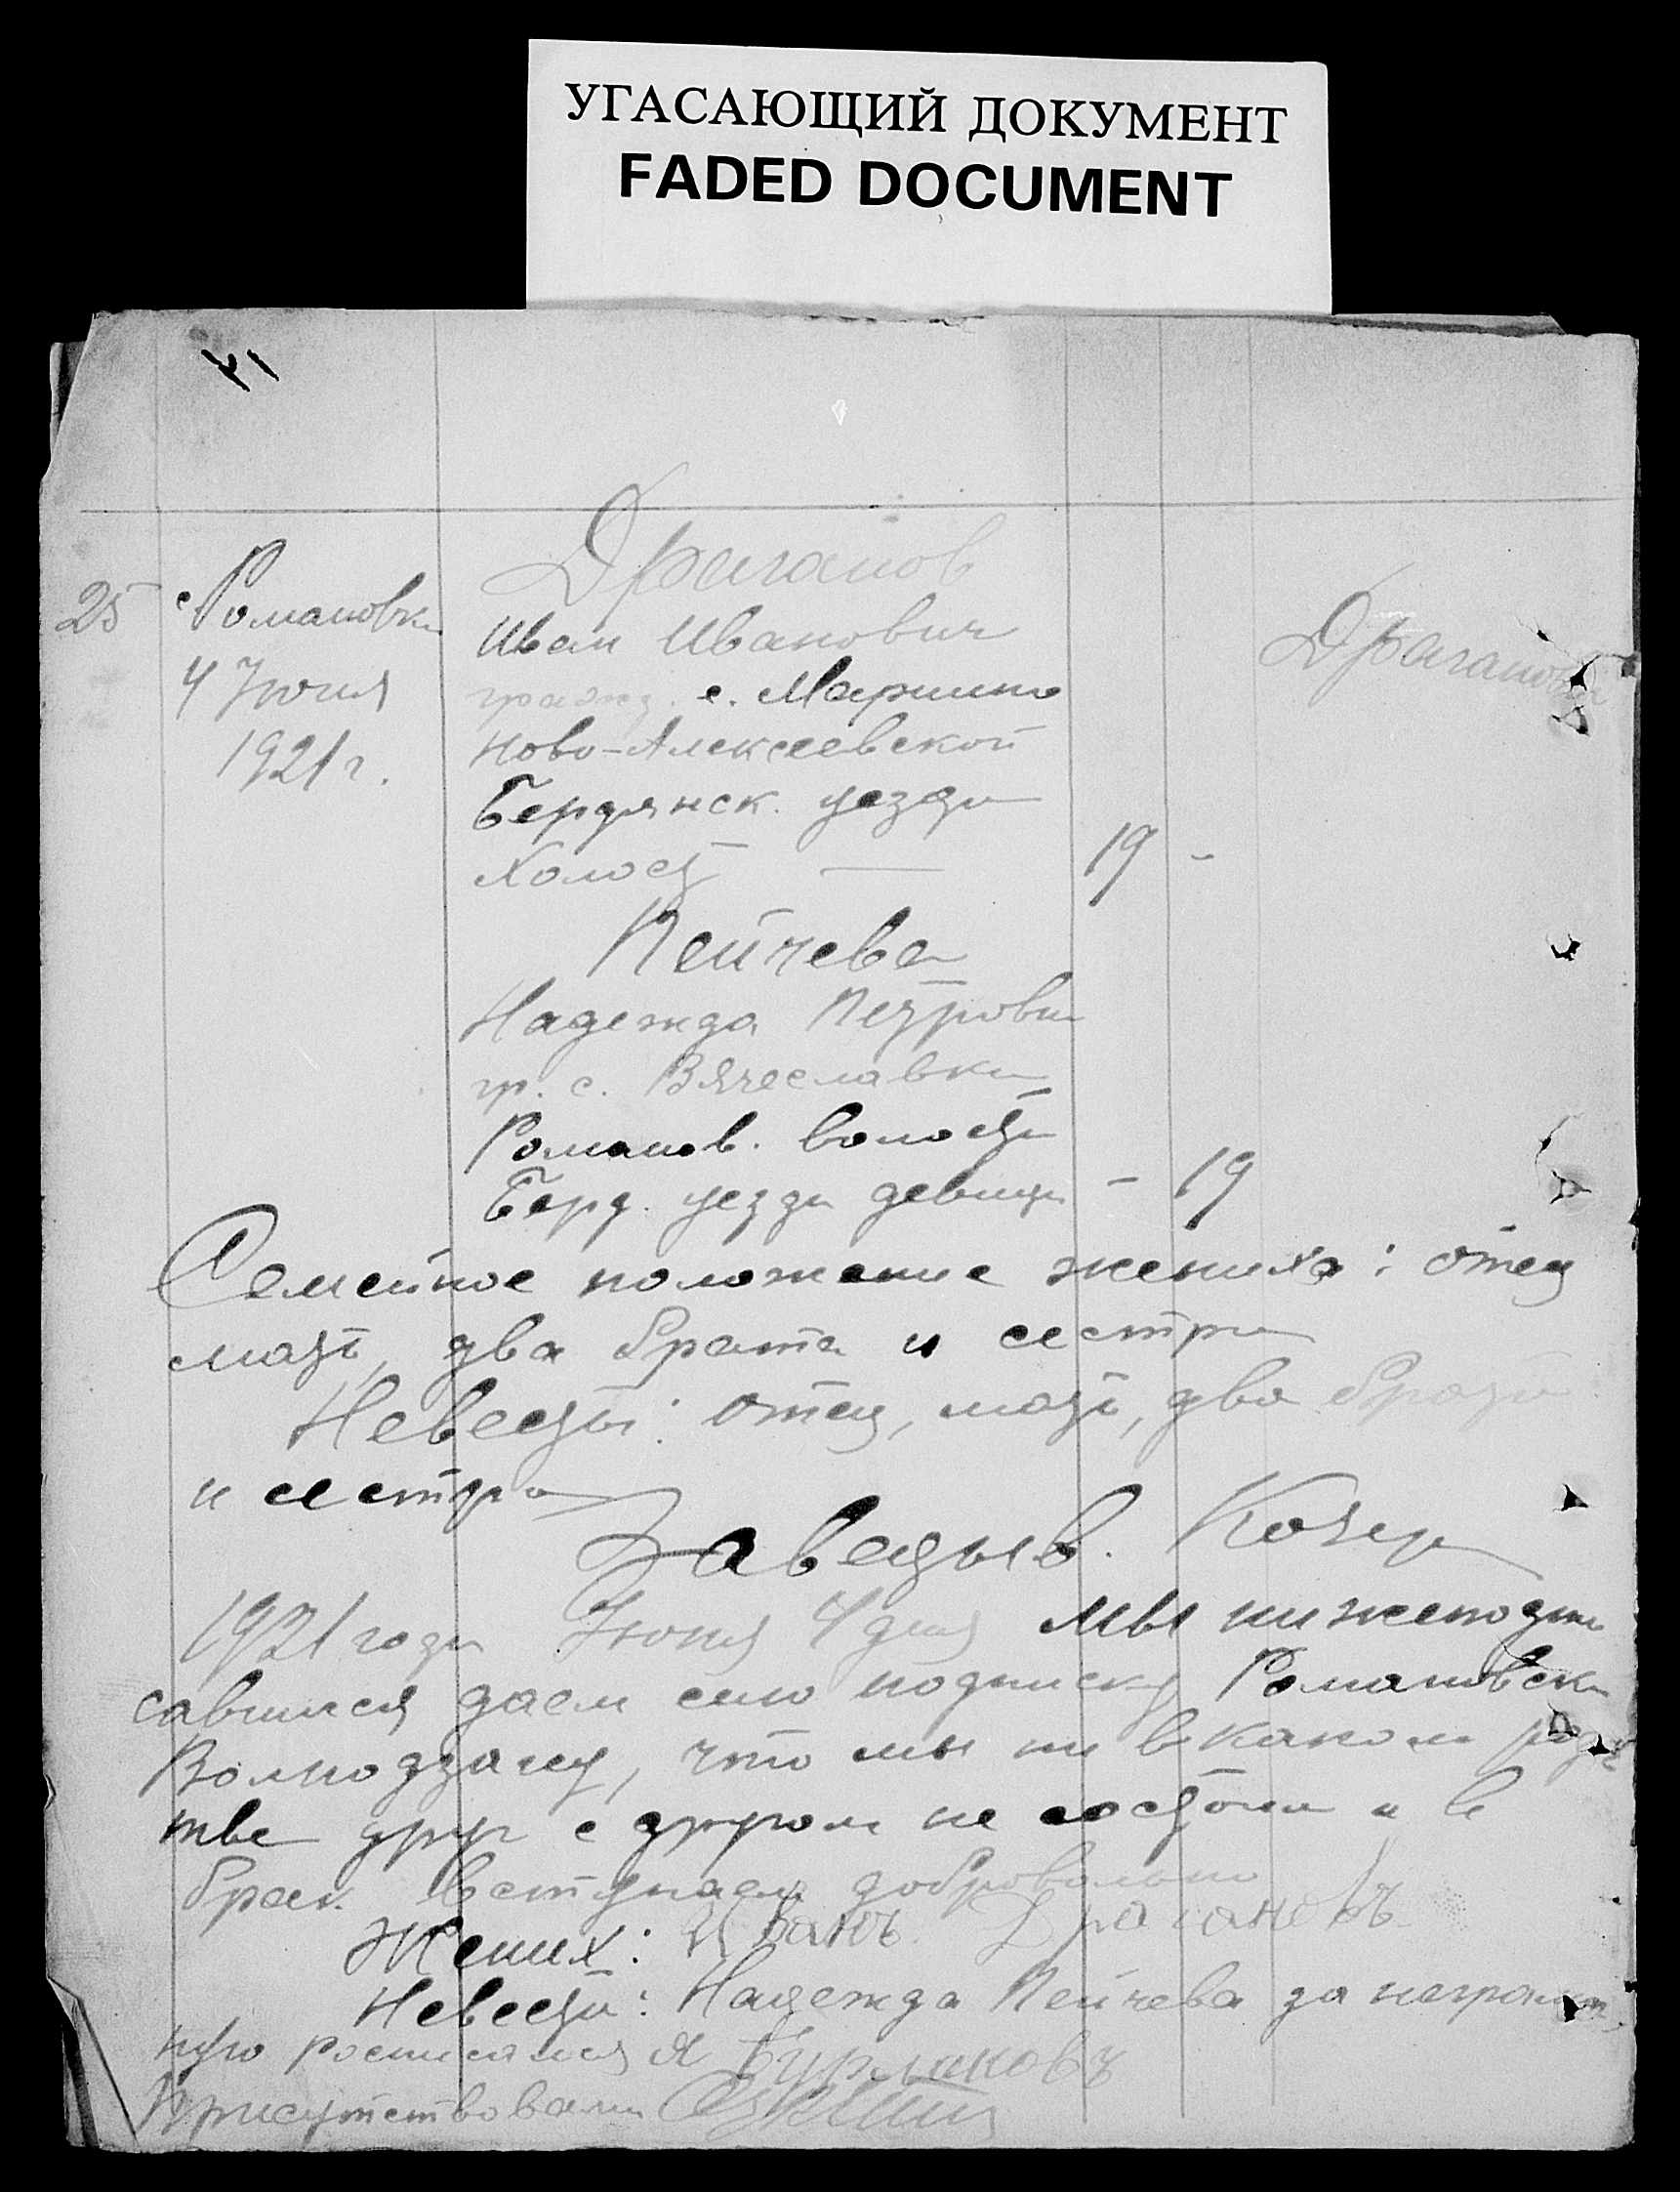 УГАСАЮЩИЙ ДОКУМЕНТ
FADED DOCUMENT
Драганов
25 с Романовка
Иван Иванович
Драгановы
4 Июня
гражд. с. Марино
1921 г.
Ново-Алексеевской
Бердянск. уезда
Холост — 19 -
Пейчева
Надежда Петровна
гр. с. Вячеславки
Романов. волости
Берд. уезда девица - 19
Семейное положение жениха: отец
мать, два брата и сестра
Невесты: отец, мать, два брата
и сестра
Заведыв.
1921 года Июня 4 дня мы нижеподпи
савшиеся даем сию подписку Романовска
что мы ни в каком родс
тве друг с другом не состоим и в
брак вступаем добровольно
Жених: Иванъ Драгановъ
Невеста: Надежда Пейчева за неграмот
ную росписался я Бурлаковъ
Присутствовали